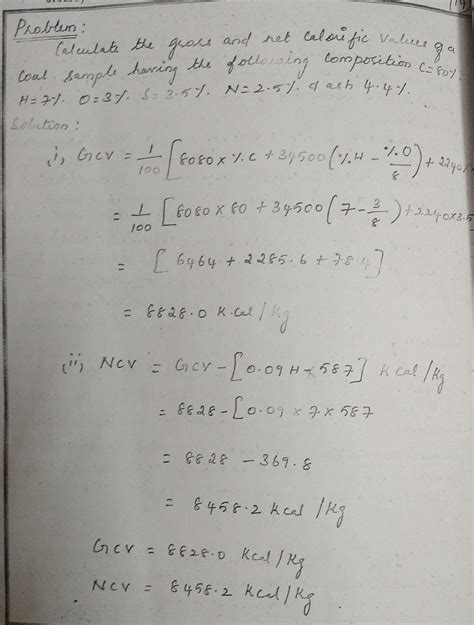 Problem:
Calculate the gross and net calorific values of a
Coal sample having the following composition C=80%.
H=7%. O=3%. S=3.5%. N=2.5% & ash 4.4%.
Solution:
(i) GCV = 1/100 [8080 x %.C + 34500 (%.H - %.O/8) + 2240 x
= 1/100 [8080 x 80 + 34500 (7 - 3/8) + 2240 x 3.5
= [6464 + 2285.6 + 78.4]
= 8828.0 K.Cal/Kg
(ii) NCV = GCV - [0.09 H x 587] K cal/Kg
= 8828 - [0.09 x 7 x 587
= 8828 - 369.8
= 8458.2 Kcal/Kg
GCV = 8828.0 Kcal/Kg
NCV = 8458.2 Kcal/Kg